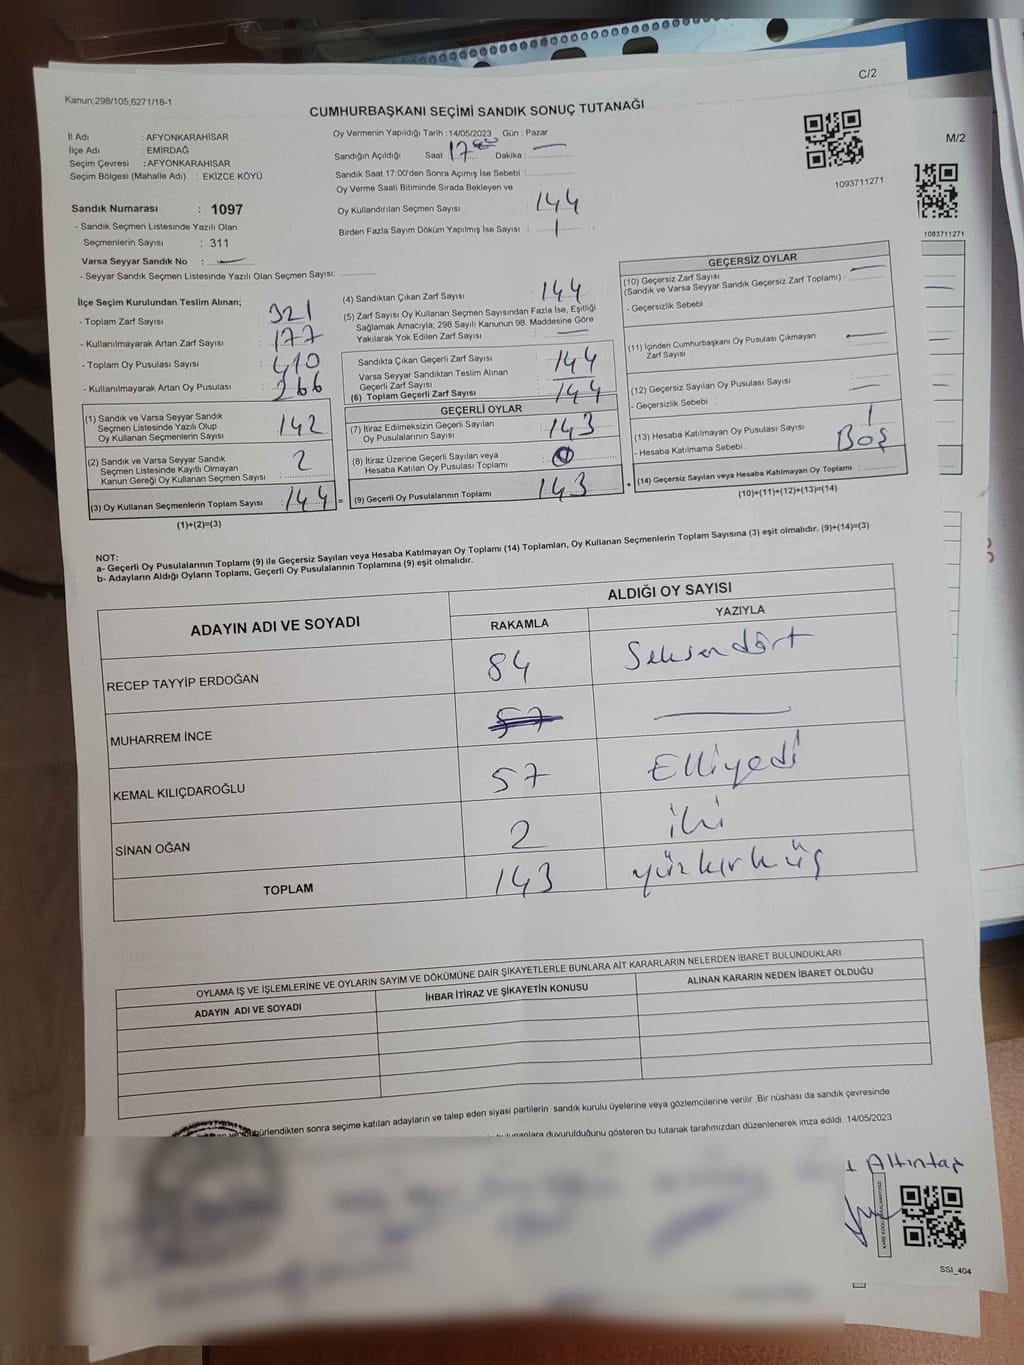 C/2
Kanun;298/105;6271/18-1
CUMHURBAŞKANI SEÇİMİ SANDIK SONUÇ TUTANAĞI
M/2
İl Adı : AFYONKARAHİSAR
İlçe Adı : EMİRDAĞ
Seçim Çevresi : AFYONKARAHİSAR
Seçim Bölgesi (Mahalle Adı) : EKİZCE KÖYÜ
Oy Vermenin Yapıldığı Tarih : 14/05/2023 Gün : Pazar
Sandığın Açıldığı Saat 17 00 Dakika :
Sandık Saat 17:00'den Sonra Açımış İse Sebebi :
Oy Verme Saati Bitiminde Sırada Bekleyen ve
Oy Kullandırılan Seçmen Sayısı : 144
Birden Fazla Sayım Döküm Yapılmış İse Sayısı : 1
1093711271
1083711271
Sandık Numarası : 1097
- Sandık Seçmen Listesinde Yazılı Olan
Seçmenlerin Sayısı : 311
Varsa Seyyar Sandık No :
- Seyyar Sandık Seçmen Listesinde Yazılı Olan Seçmen Sayısı:
İlçe Seçim Kurulundan Teslim Alınan;
- Toplam Zarf Sayısı : 321
- Kullanılmayarak Artan Zarf Sayısı : 177
- Toplam Oy Pusulası Sayısı : 410
- Kullanılmayarak Artan Oy Pusulası : 266
(1) Sandık ve Varsa Seyyar Sandık
Seçmen Listesinde Yazılı Olup
Oy Kullanan Seçmenlerin Sayısı : 142
(2) Sandık ve Varsa Seyyar Sandık
Seçmen Listesinde Kayıtlı Olmayan
Kanun Gereği Oy Kullanan Seçmen Sayısı : 2
(3) Oy Kullanan Seçmenlerin Toplam Sayısı : 144 =
(1)+(2)=(3)
(4) Sandıktan Çıkan Zarf Sayısı : 144
(5) Zarf Sayısı Oy Kullanan Seçmen Sayısından Fazla İse, Eşitliği
Sağlamak Amacıyla; 298 Sayılı Kanunun 98. Maddesine Göre
Yakılarak Yok Edilen Zarf Sayısı :
Sandıkta Çıkan Geçerli Zarf Sayısı : 144
Varsa Seyyar Sandıktan Teslim Alınan
Geçerli Zarf Sayısı :
(6) Toplam Geçerli Zarf Sayısı : 144
GEÇERLİ OYLAR
(7) İtiraz Edilmeksizin Geçerli Sayılan
Oy Pusulalarının Sayısı : 143
(8) İtiraz Üzerine Geçerli Sayılan veya
Hesaba Katılan Oy Pusulası Toplamı : 0
(9) Geçerli Oy Pusulalarının Toplamı : 143
GEÇERSİZ OYLAR
(10) Geçersiz Zarf Sayısı
(Sandık ve Varsa Seyyar Sandık Geçersiz Zarf Toplamı) :
- Geçersizlik Sebebi :
(11) İçinden Cumhurbaşkanı Oy Pusulası Çıkmayan
Zarf Sayısı
(12) Geçersiz Sayılan Oy Pusulası Sayısı :
- Geçersizlik Sebebi :
(13) Hesaba Katılmayan Oy Pusulası Sayısı : 1
- Hesaba Katılmama Sebebi : Boş
(14) Geçersiz Sayılan veya Hesaba Katılmayan Oy Toplamı :
(10)+(11)+(12)+(13)=(14)
NOT:
a- Geçerli Oy Pusulalarının Toplamı (9) ile Geçersiz Sayılan veya Hesaba Katılmayan Oy Toplamı (14) Toplamları, Oy Kullanan Seçmenlerin Toplam Sayısına (3) eşit olmalıdır. (9)+(14)=(3)
b- Adayların Aldığı Oyların Toplamı, Geçerli Oy Pusulalarının Toplamına (9) eşit olmalıdır.
ADAYIN ADI VE SOYADI
ALDIĞI OY SAYISI
RAKAMLA YAZIYLA
RECEP TAYYİP ERDOĞAN 84 Seksendört
MUHARREM İNCE 57
KEMAL KILIÇDAROĞLU 57 Elliyedi
SİNAN OĞAN 2 iki
TOPLAM 143 yüzkırküç
OYLAMA İŞ VE İŞLEMLERİNE VE OYLARIN SAYIM VE DÖKÜMÜNE DAİR ŞİKAYETLERLE BUNLARA AİT KARARLARIN NELERDEN İBARET BULUNDUKLARI
ADAYIN ADI VE SOYADI İHBAR İTİRAZ VE ŞİKAYETİN KONUSU ALINAN KARARIN NEDEN İBARET OLDUĞU
sonra seçime katılan adayların ve talep eden siyasi partilerin sandık kurulu üyelerine veya gözlemcilerine verilir .Bir nüshası da sandık çevresinde
duyurulduğunu gösteren bu tutanak tarafımızdan düzenlenerek imza edildi. 14/05/2023
Altıntaş
SSİ_404